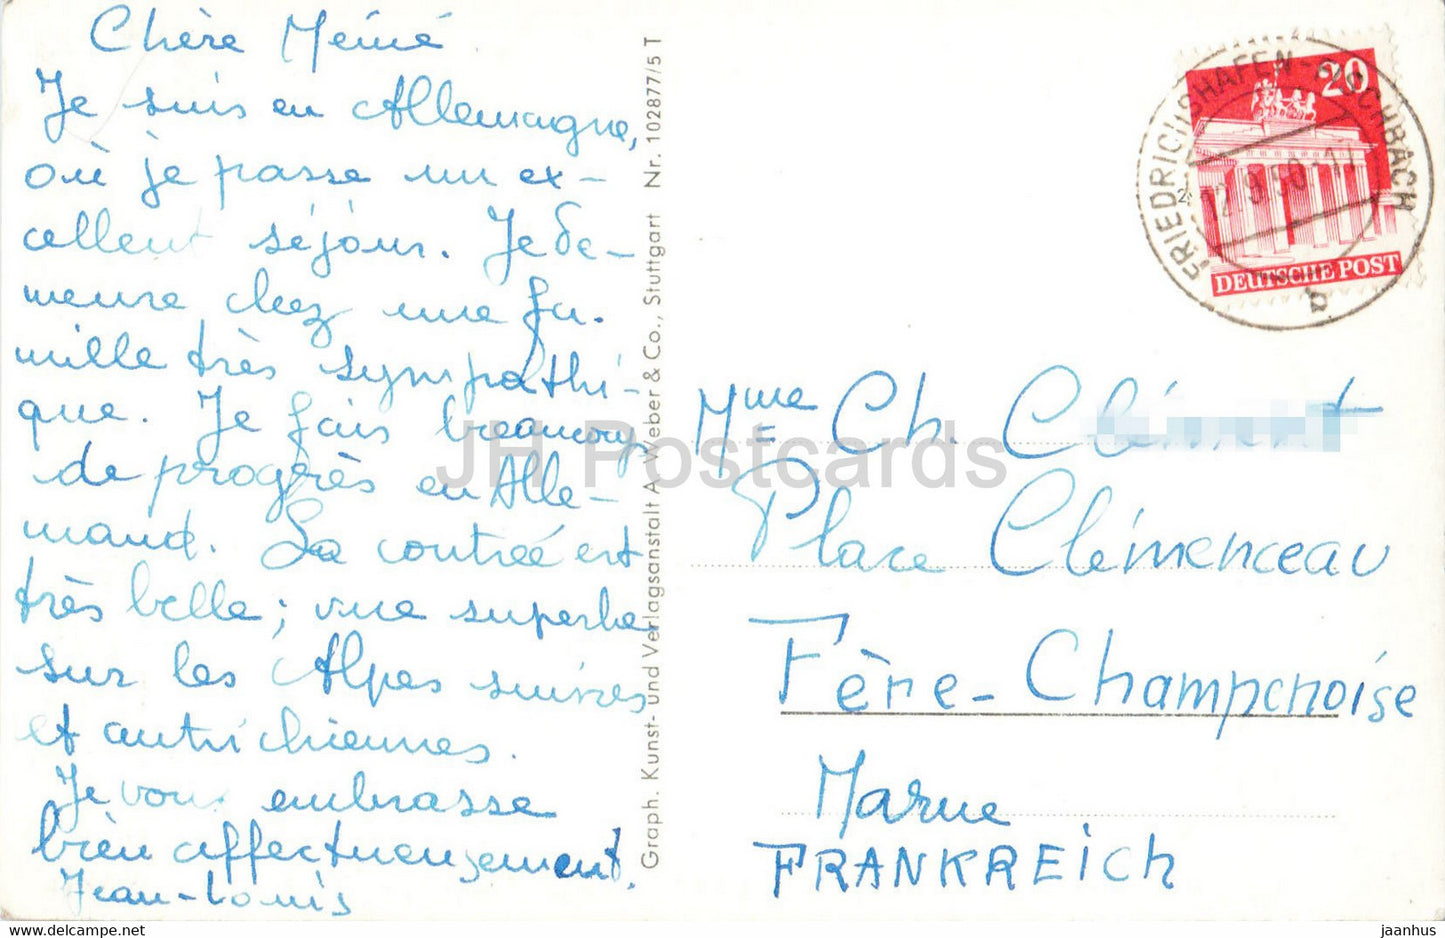 Chère Mémé
Je suis en Allemagne,
où je passe un ex-
cellent séjour. Je de-
meure chez une fa-
mille très sympathi-
que. Je fais beaucoup
de progrès en Alle-
mand. La contrée est
très belle ; vue superbe
sur les Alpes suisses
et autrichiennes.
Je vous embrasse
bien affectueusement.
Jean-Louis
Graph. Kunst- und Verlagsanstalt A. Weber & Co., Stuttgart Nr. 102877/5 T
20
DEUTSCHE POST
FRIEDRICHSHAFEN-FISCHBACH
12.9.50
a
Mme Ch.
Place Clémenceau
Fère-Champenoise
Marne
FRANKREICH
JH Postcards
hipstamp.com
jaanhus